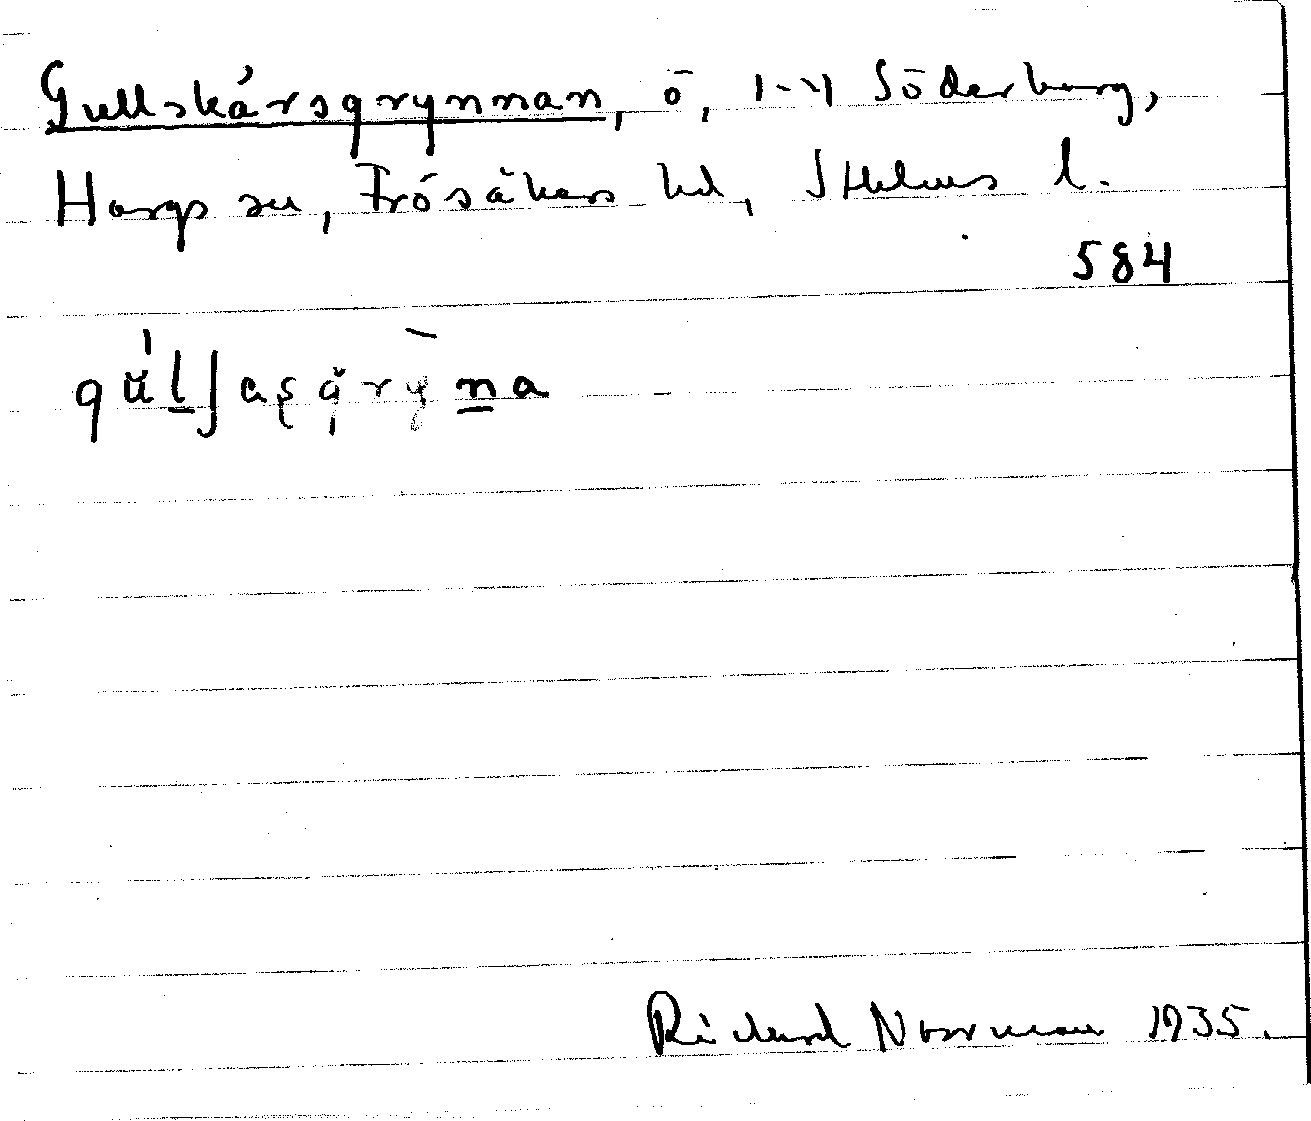 Gullskärsgrynnan, ö, 1-4 Söderberg,
Hargs sn, Frösåkers hd, Sthlms l.
584
Richard Norrman 1935.